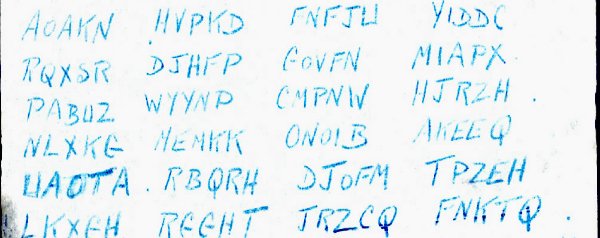 AOAKN HVPKD FNFJU YIDDC
RQXSR DJHFP GOVFN MIAPX
PABUZ WYYNP CMPNW HJRZH .
NLXKG MEMKK ONOIB AKEEQ
UAOTA . RBQRH DJOFM TPZEH
LKXGH RGGHT JRZCQ FNKTQ .